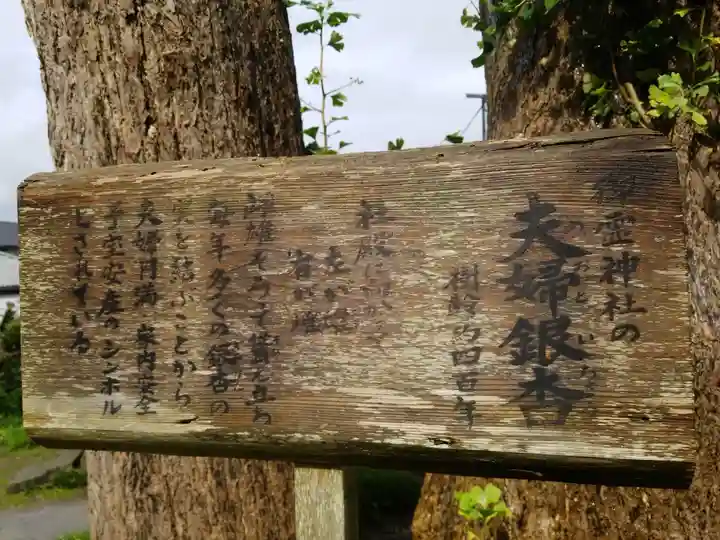 御霊神社の
夫婦銀杏
めおといちょう
樹齢約四百年
社殿に向かって
左が
右が雄
雌雄そろって実を立ち
毎年多くの銀杏の
実を結ぶことから
夫婦円満 家内安全
子宝安産のシンボル
とされている